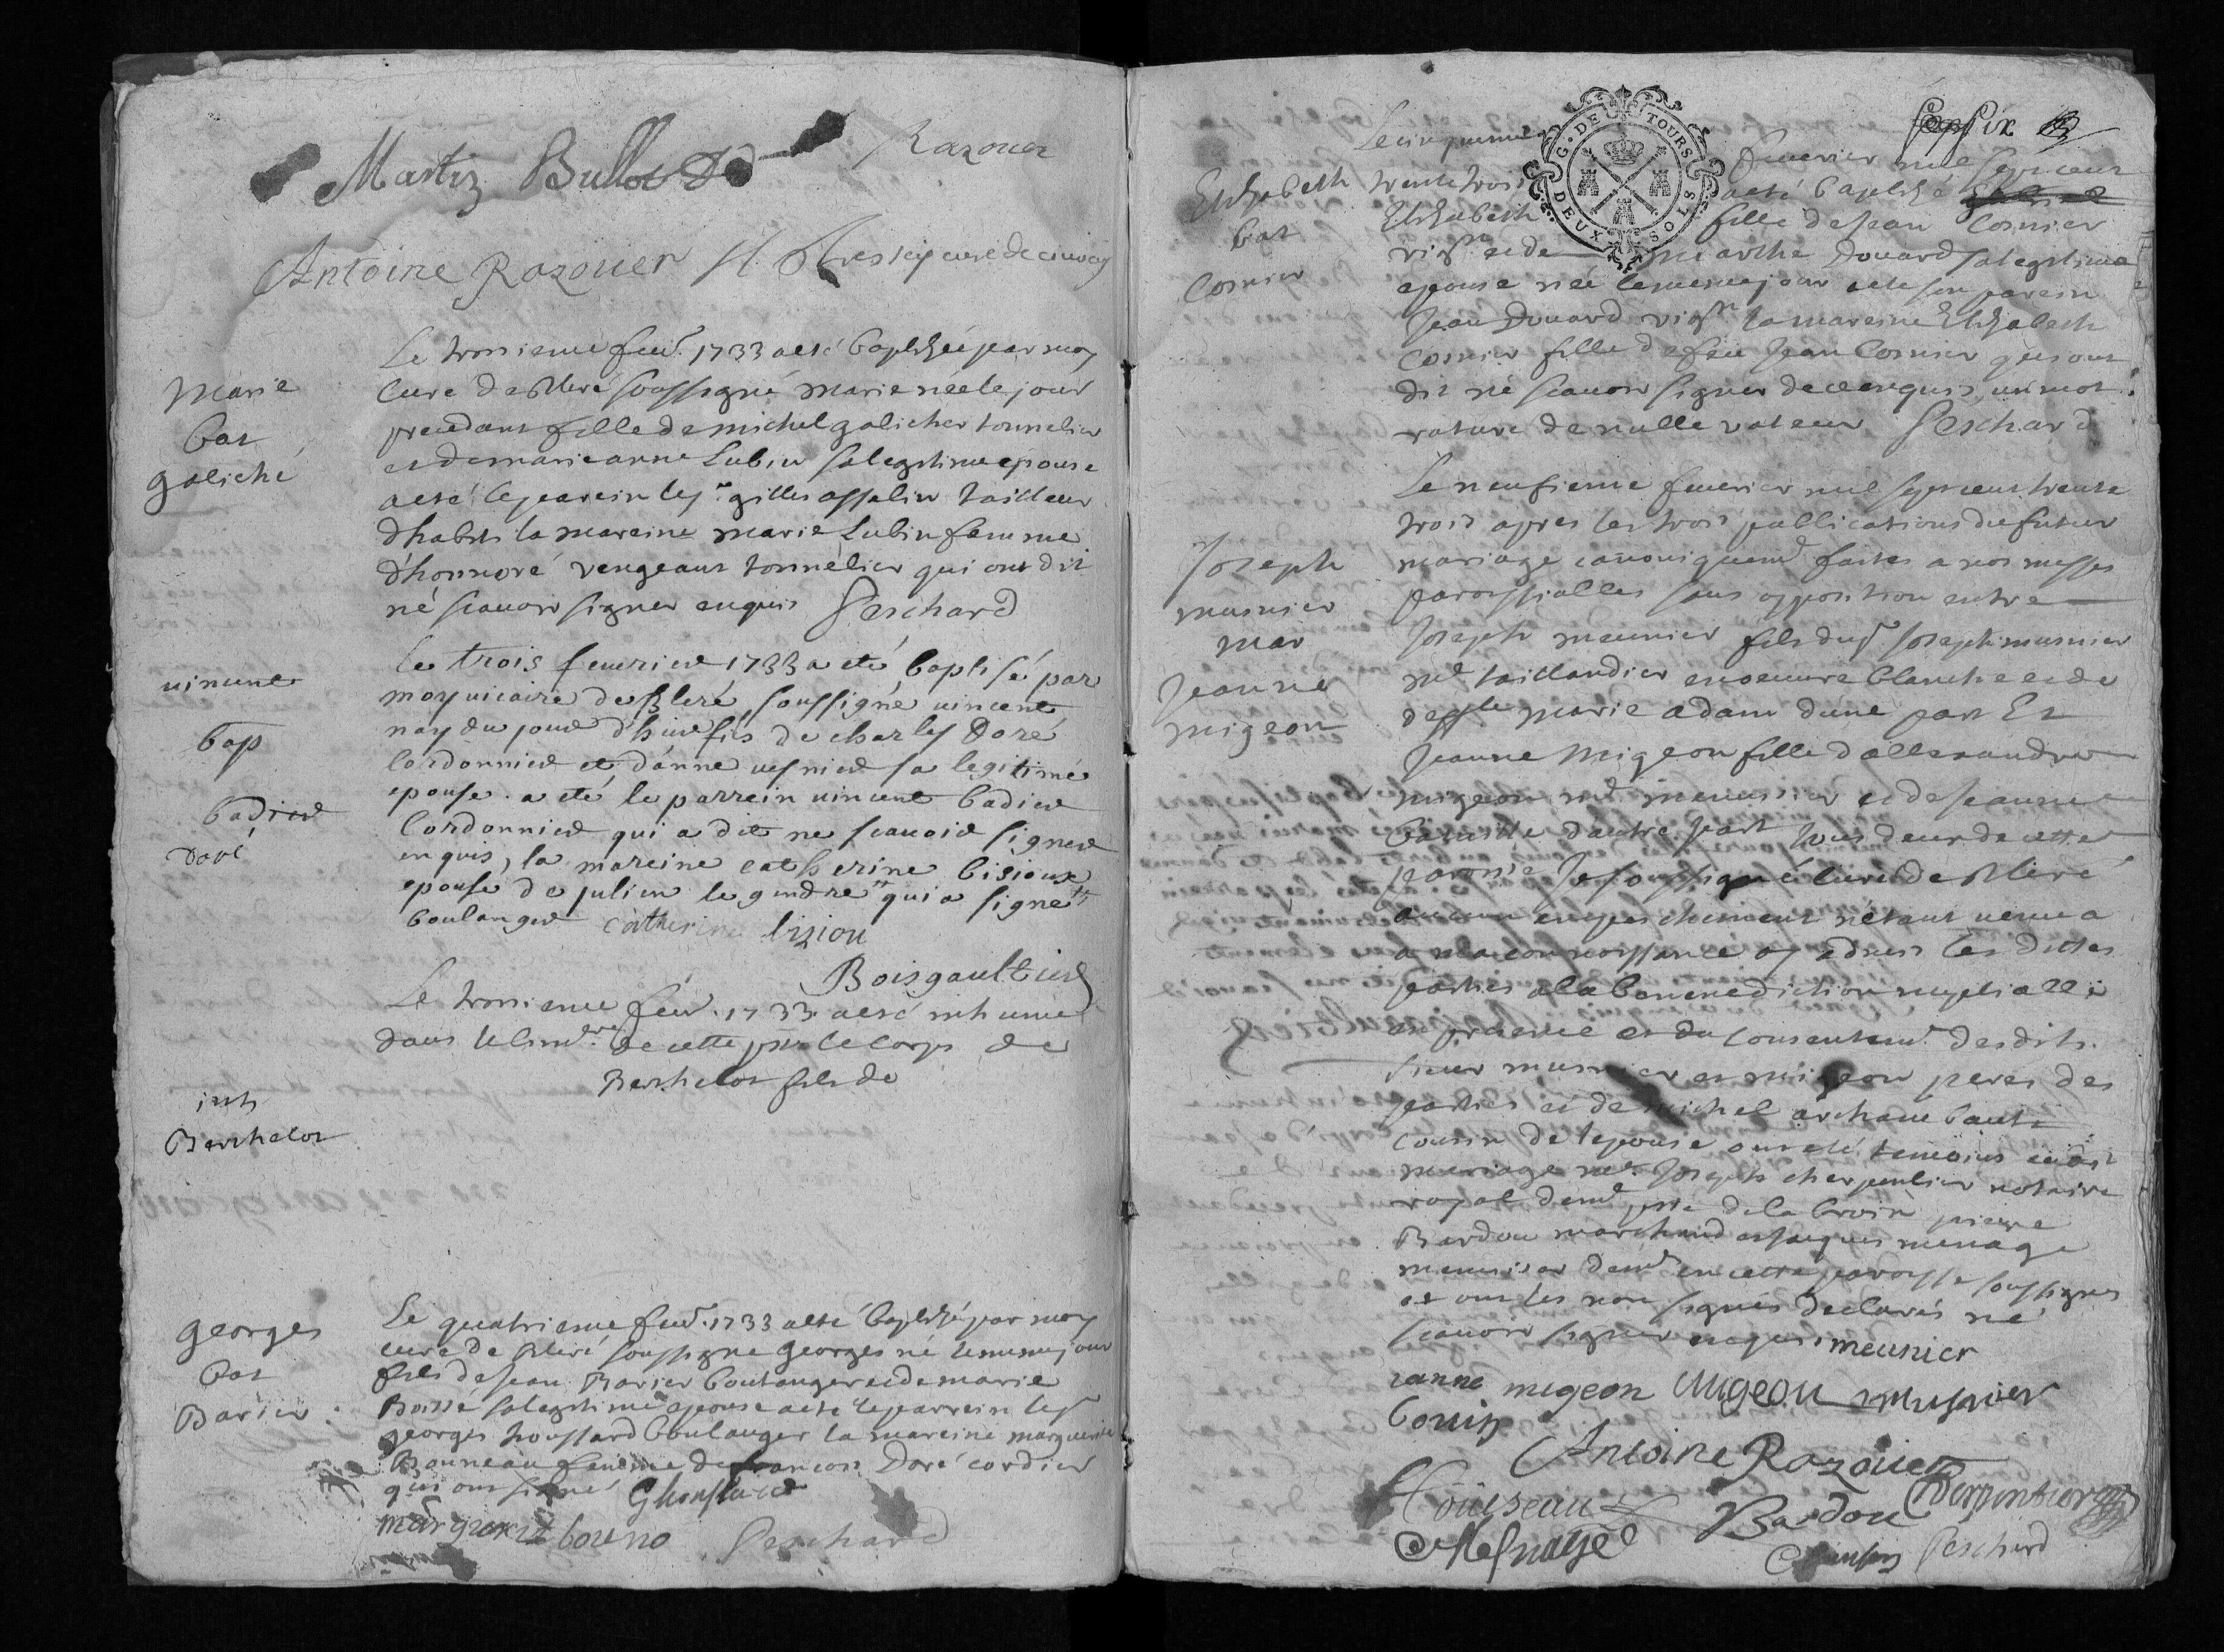 Razouer
Martin Bullot
Antoine Razoüer H. curé de
Marie
bat
galiché
Le troisieme feuv. 1733 aesté baptizée par moy
curé de Bleré soussigné marie neele jour
precedant fille de michel galicher tonnelier
et de marie anne Lubin sa legitime epouse
aesté le parein le sr. gilles asselin tailleur
d'habits la mareine marie Lubin femme
d'honnoré vengeant tonnélier qui ont dit
né scauoir signer enquis Peschard
uincent
bap
badier
Doré
le trois feurier 1733 a eté baptisé par
moy uicaire de Bleré soussigné uincent
nay du jour d'huie fils de charles Doré
cordonnier et danne uesnier sa legitime
epouse. a eté le parrein uincent badier
Cordonnier qui a dit ne scauoir signer
enquis, la mareine catherine bisioux
epouse de julien le gendre qui a signé
boulanger catherine biziou
Boisgaultier
inh
Berthelot
Le troisieme feuv. 1733 aesté inhumé
dans le de cette psse le corps de
Berthelot fils de
georges
bat
Barier
Le quatrieme feuv. 1733 aesté baptizé par moy
curé de Bleré soussigné georges né le mesme jour
fils de jean Barier boulanger et de marie
Boissé sa legitime epouse aesté le parrein le sr
georges houssard boulanger la mareine marguerite
Bonneau femme de francois Doré cordier
qui ont signé Ghoussard
marguerite bouno Peschard
six
G. DE TOURS
DEUX SOLS
Elizabeth
bat
Cornier
Le cinquieme feuurier mil sept cent
trente trois aesté baptizé
Elizabeth fille de jean Cornier
vign et de marthe Douard sa legitime
epouse née le mesme jour aeté son parein
Jean Douard vign la mareine Elizabeth
Cornier fille de feu Jean Cornier qui ont
dit né scauoir signer de ce enquis un mot
rature de nulle valeur Peschard
Joseph
musnier
mar
Jeanne
migeon
Le neufieme feuurier mil sept cent trente
trois apres les trois publications du futur
mariage canoniquemt faites a nos messes
paroissialles sans opposition entre
Joseph meunier fils du sr joseph musnier
md taillandier en oeuure blanche et de
marie adam dune part Et
Jeanne Migeon fille dallexandre
migeon md menuisier et de jeanne
d'autre part tous deux de cette
paroisse Je soussigné curé de Bleré
aucun empeschement n'étant uenu a
a ma connoissance ay admis les dittes
parties a la benediction nuptialle
en presence et du consentemt desdits
sieur musnier et migeon peres des
parties et de michel archambault
cousin de lepouse ont eté temoins audit
mariage me. Joseph cherpentier notaire
royal demt psse de la Croix pierre
Bardou marchand et jacques menage
menuisier demt en cette paroisse soussignes
et ont les non signés declarés né
scauoir signer enquis meunier
ianne migeon Migeon musnier
bouin
Antoine Razoüer
Cousseau Bardou Cherpentier
Mesnage Peschard